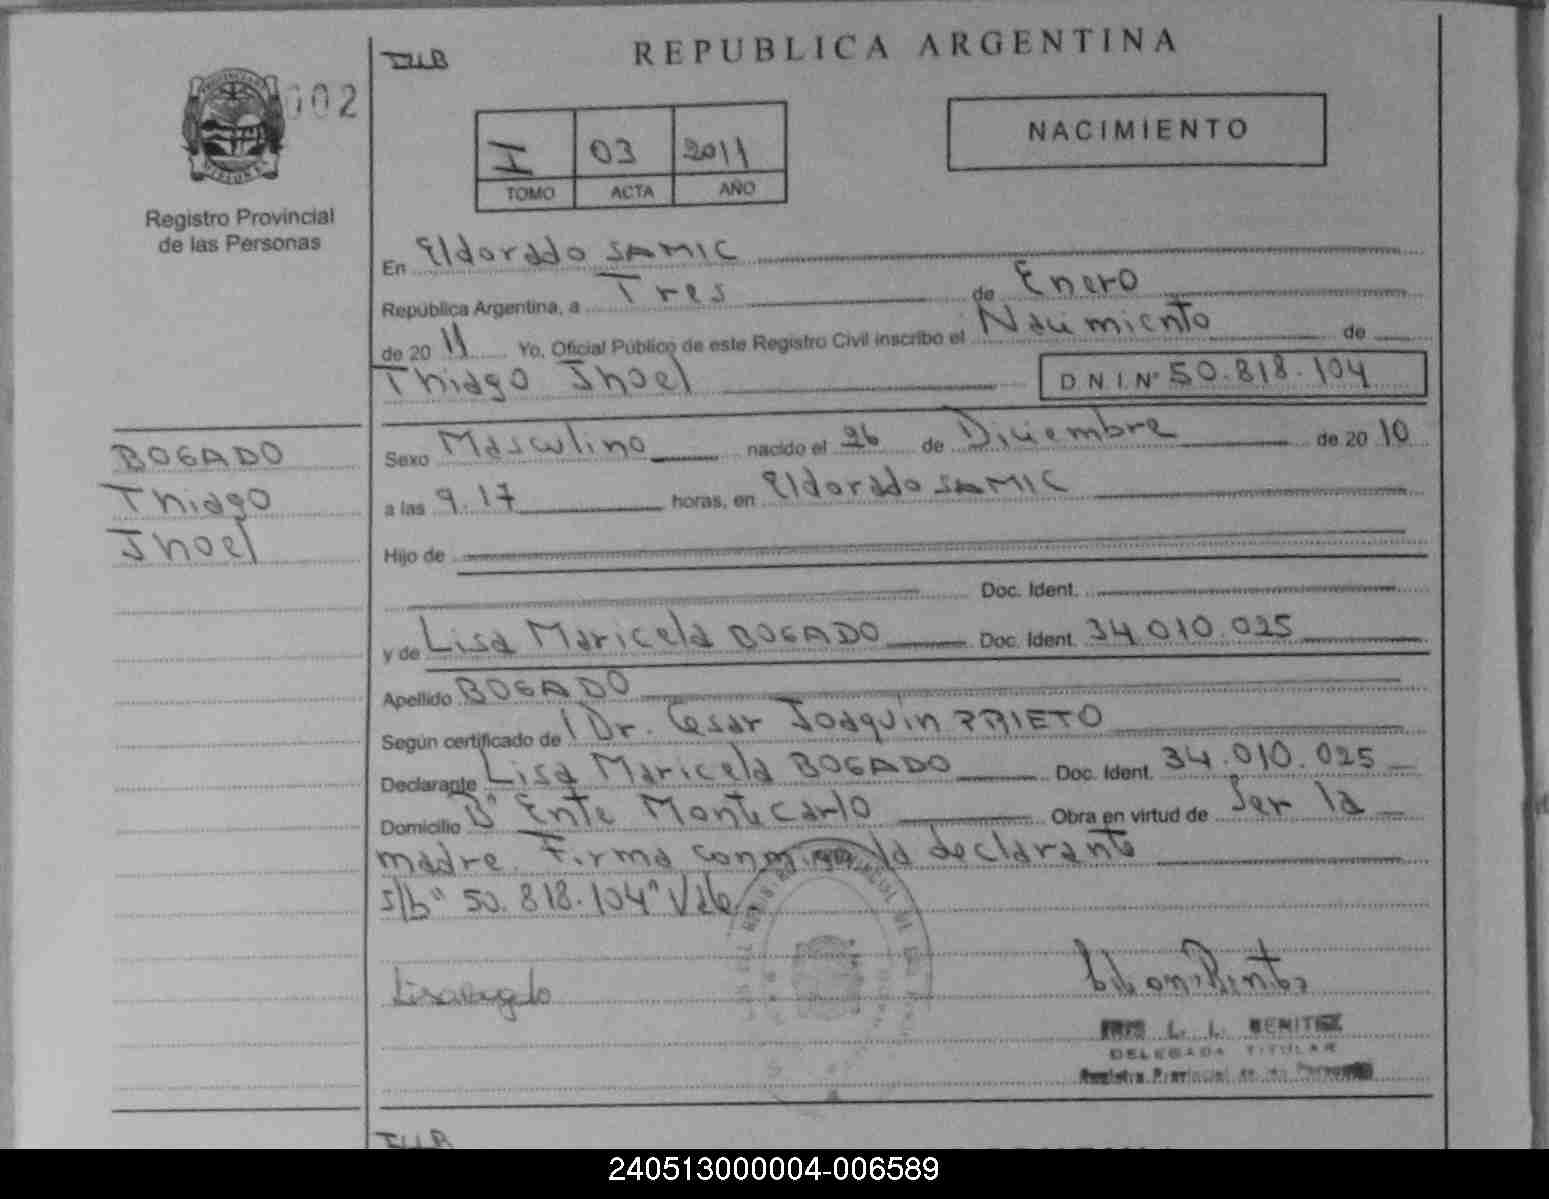 ILLB
REPUBLICA ARGENTINA
002
I 03 2011
TOMO ACTA AÑO
NACIMIENTO
Registro Provincial
de las Personas
En Eldorado SAMIC
República Argentina, a Tres de Enero
de 20 11 Yo, Oficial Público de este Registro Civil inscribo el Nacimiento de
Thiago Jhoel D.N.I.Nº 50.818.104
BOGADO
Thiago
Jhoel
Sexo Masculino nacido el 26 de Diciembre de 20 10
a las 9.17 horas, en Eldorado SAMIC
Hijo de
Doc. Ident.
y de Lisa Maricela BOGADO Doc. Ident. 34.010.025
Apellido BOGADO
Según certificado de Dr. Cesar Joaquin PRIETO
Declarante Lisa Maricela BOGADO Doc. Ident. 34.010.025
Domicilio Bº Ente Montecarlo Obra en virtud de Ser la
madre. Firma conmigo la declarante
s/b "50.818.104" Vale
L. L. BENITEZ
DELEGADA TITULAR
Registro Provincial de las Personas
240513000004-006589